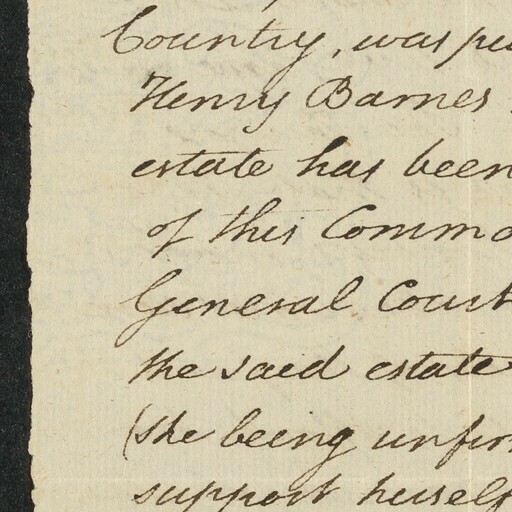 Country, was pu
Henry Barnes
estate has been
of this Commo
General Court
the said estate
(she being unfir
support herself